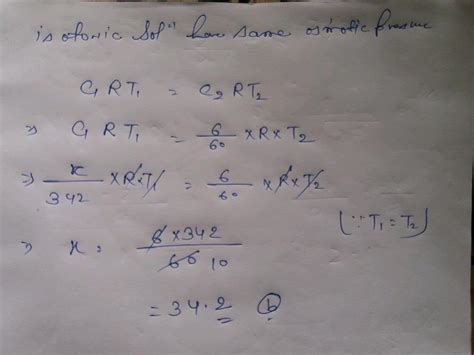 isotonic Solⁿ have same osmotic Pressure
C₁ R T₁ = C₂ R T₂
⇒ C₁ R T₁ = 6/60 × R × T₂
⇒ x/342 × R × T₁ = 6/60 × R × T₂
(∵ T₁ = T₂)
⇒ x = 6 × 342 / 60 10
= 34.2 (b)